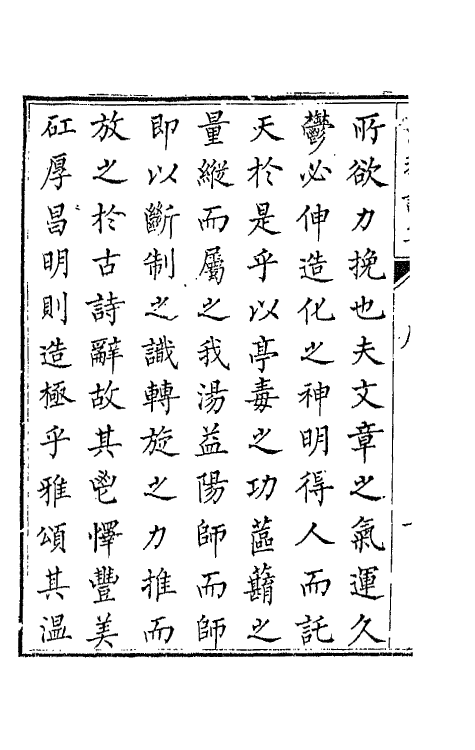 所欲力挽也夫文章之氣運久
鬱必伸造化之神明得人而託
天於是乎以亭毒之功蘊藉之
量縱而屬之我湯益陽師而師
即以斷制之識轉旋之力推而
放之於古詩辭故其鬯懌豐美
矼厚昌明則造極乎雅頌其溫